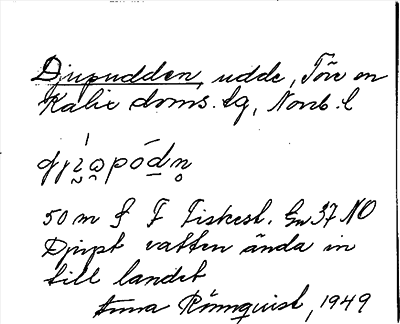 Djupudden, udde, Töre sn
Kalix doms.tg, Norrb. l
50 m f F Fiskest. Gm 37 NO
Djupt vatten ända in
till landet
Anna Rönnquist, 1949